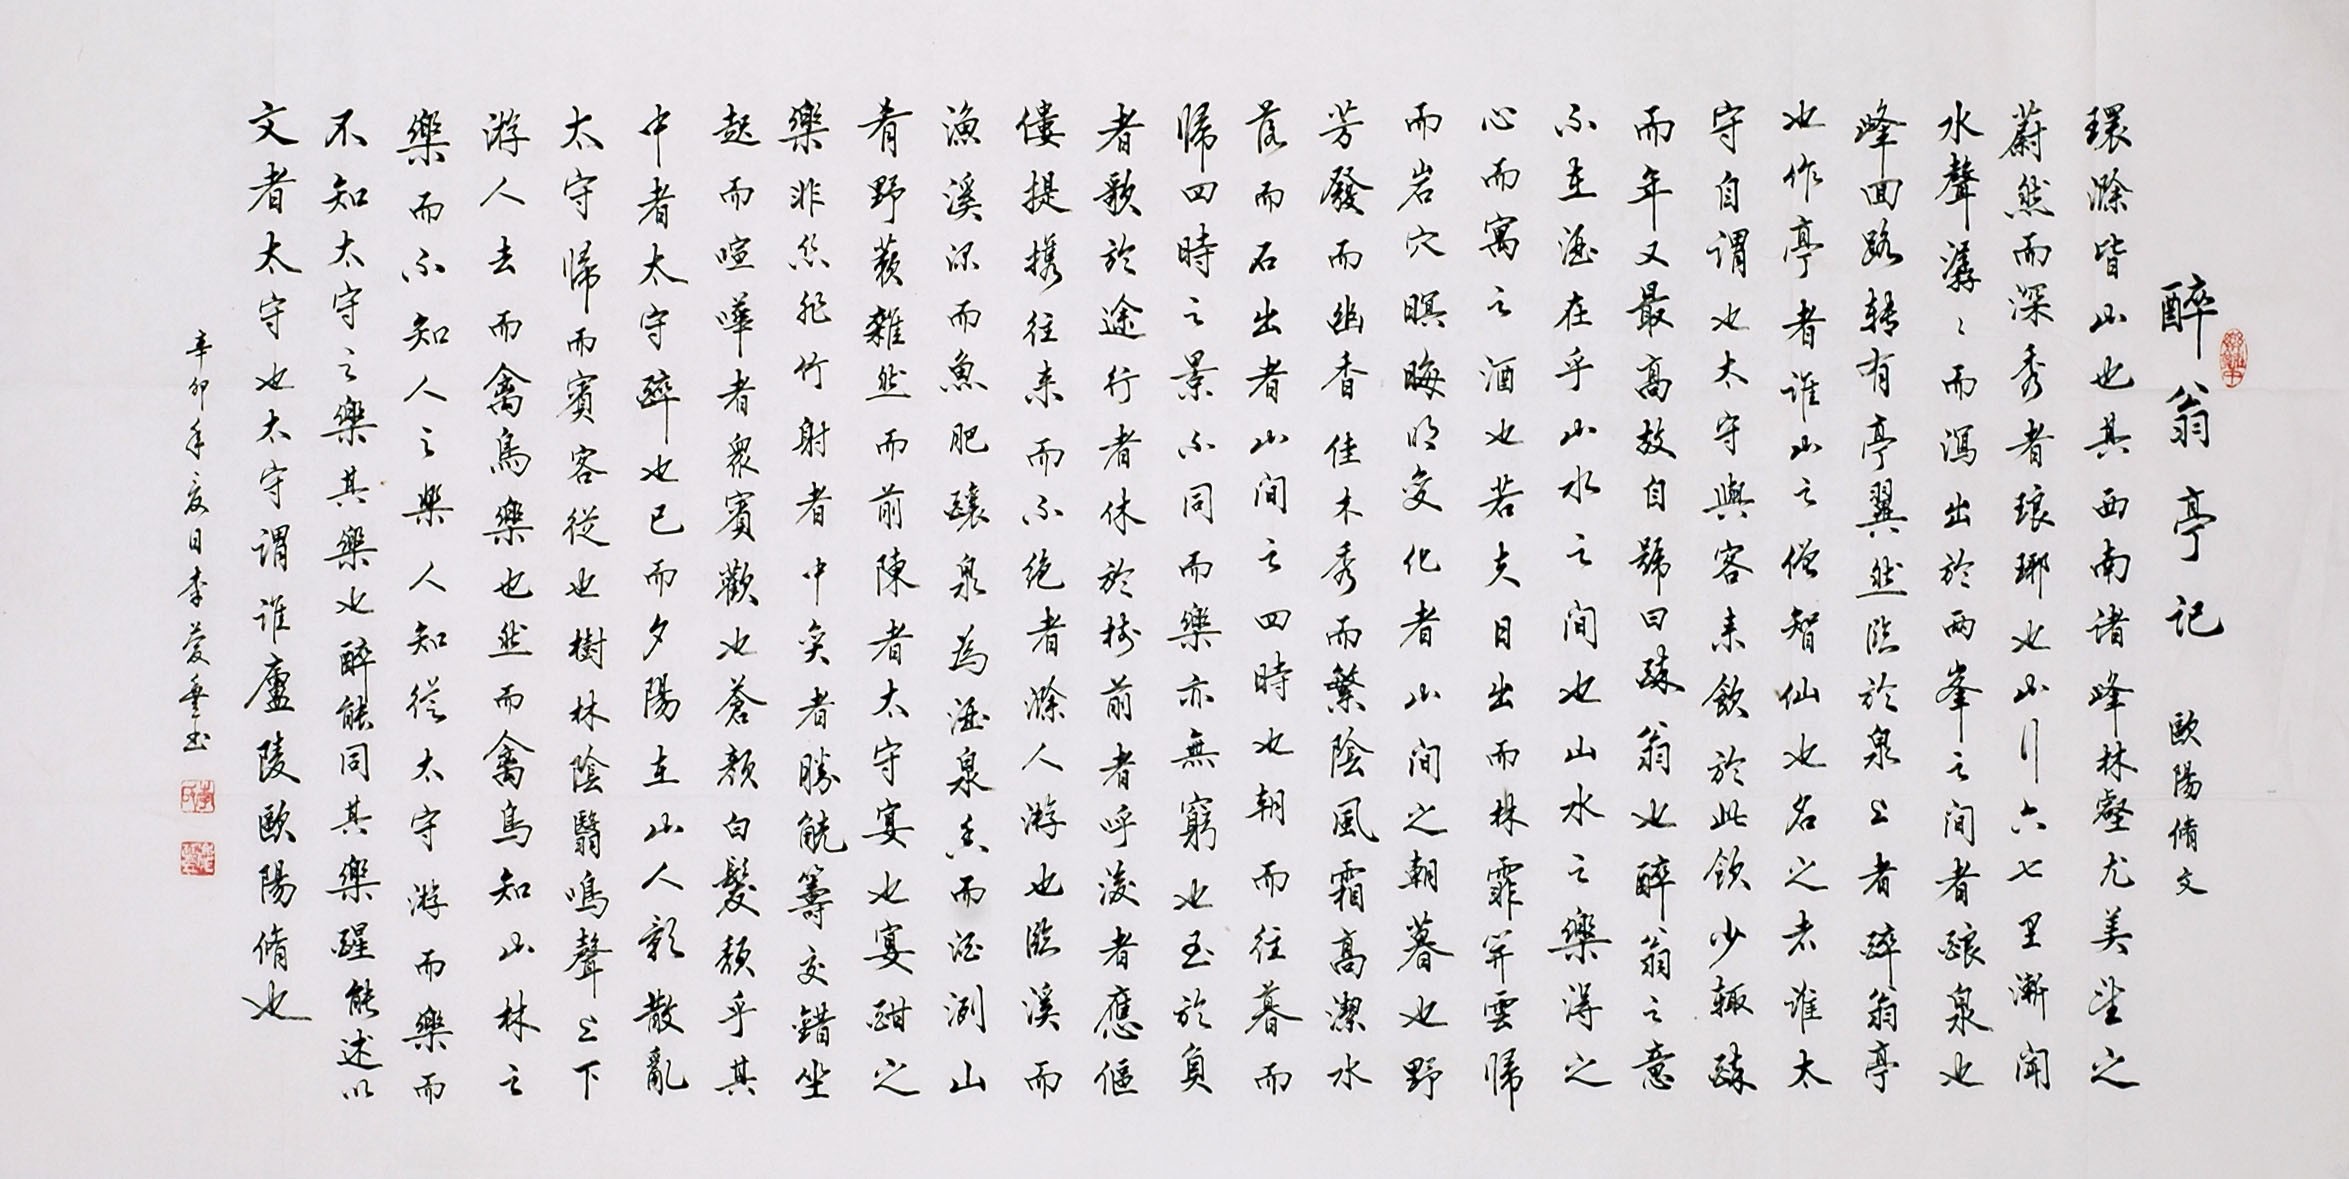 醉翁亭記 歐陽脩文
環滁皆山也其西南諸峰林壑尤美望之
蔚然而深秀者琅琊也山行六七里漸聞
水聲潺〻而瀉出於兩峯之间者釀泉也
峰回路转有亭翼然临於泉上者醉翁亭
也作亭者谁山之僧智仙也名之者谁太
守自谓也太守與客来飲於此飲少辄醉
而年又最高故自號曰醉翁也醉翁之意
不在酒在乎山水之间也山水之樂得之
心而寓之酒也若夫日出而林霏開雲歸
而岩穴暝晦明变化者山间之朝暮也野
芳發而幽香佳木秀而繁陰風霜高潔水
落而石出者山间之四時也朝而往暮而
歸四時之景不同而樂亦無窮也至於負
者歌於途行者休於树前者呼後者應傴
僂提携往来而不绝者滁人游也临溪而
渔溪深而魚肥釀泉為酒泉香而酒洌山
肴野蔌雜然而前陳者太守宴也宴酣之
樂非丝非竹射者中奕者勝觥籌交錯坐
起而喧嘩者衆賓歡也蒼顏白髮頹乎其
中者太守醉也已而夕陽在山人影散亂
太守歸而賓客從也樹林陰翳鳴聲上下
游人去而禽鳥樂也然而禽鳥知山林之
樂而不知人之樂人知從太守游而樂而
不知太守之樂其樂也醉能同其樂醒能述以
文者太守也太守谓谁廬陵歐陽脩也
辛卯年夏日李